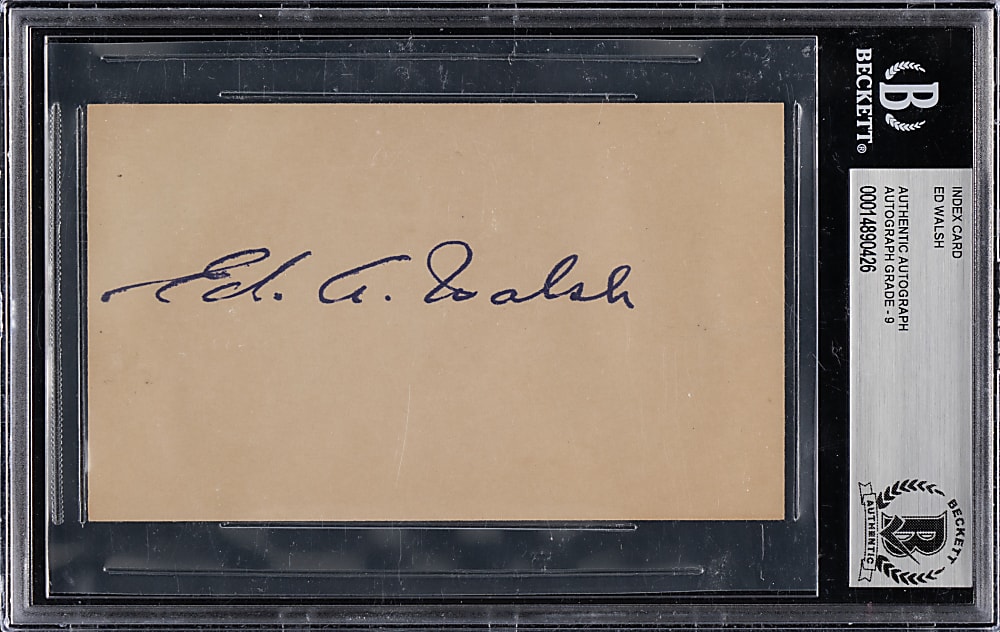 Ed. A. Walsh
BECKETT®
B
INDEX CARD
ED WALSH
AUTHENTIC AUTOGRAPH
AUTOGRAPH GRADE - 9
00014890426
BECKETT
B
AUTHENTIC